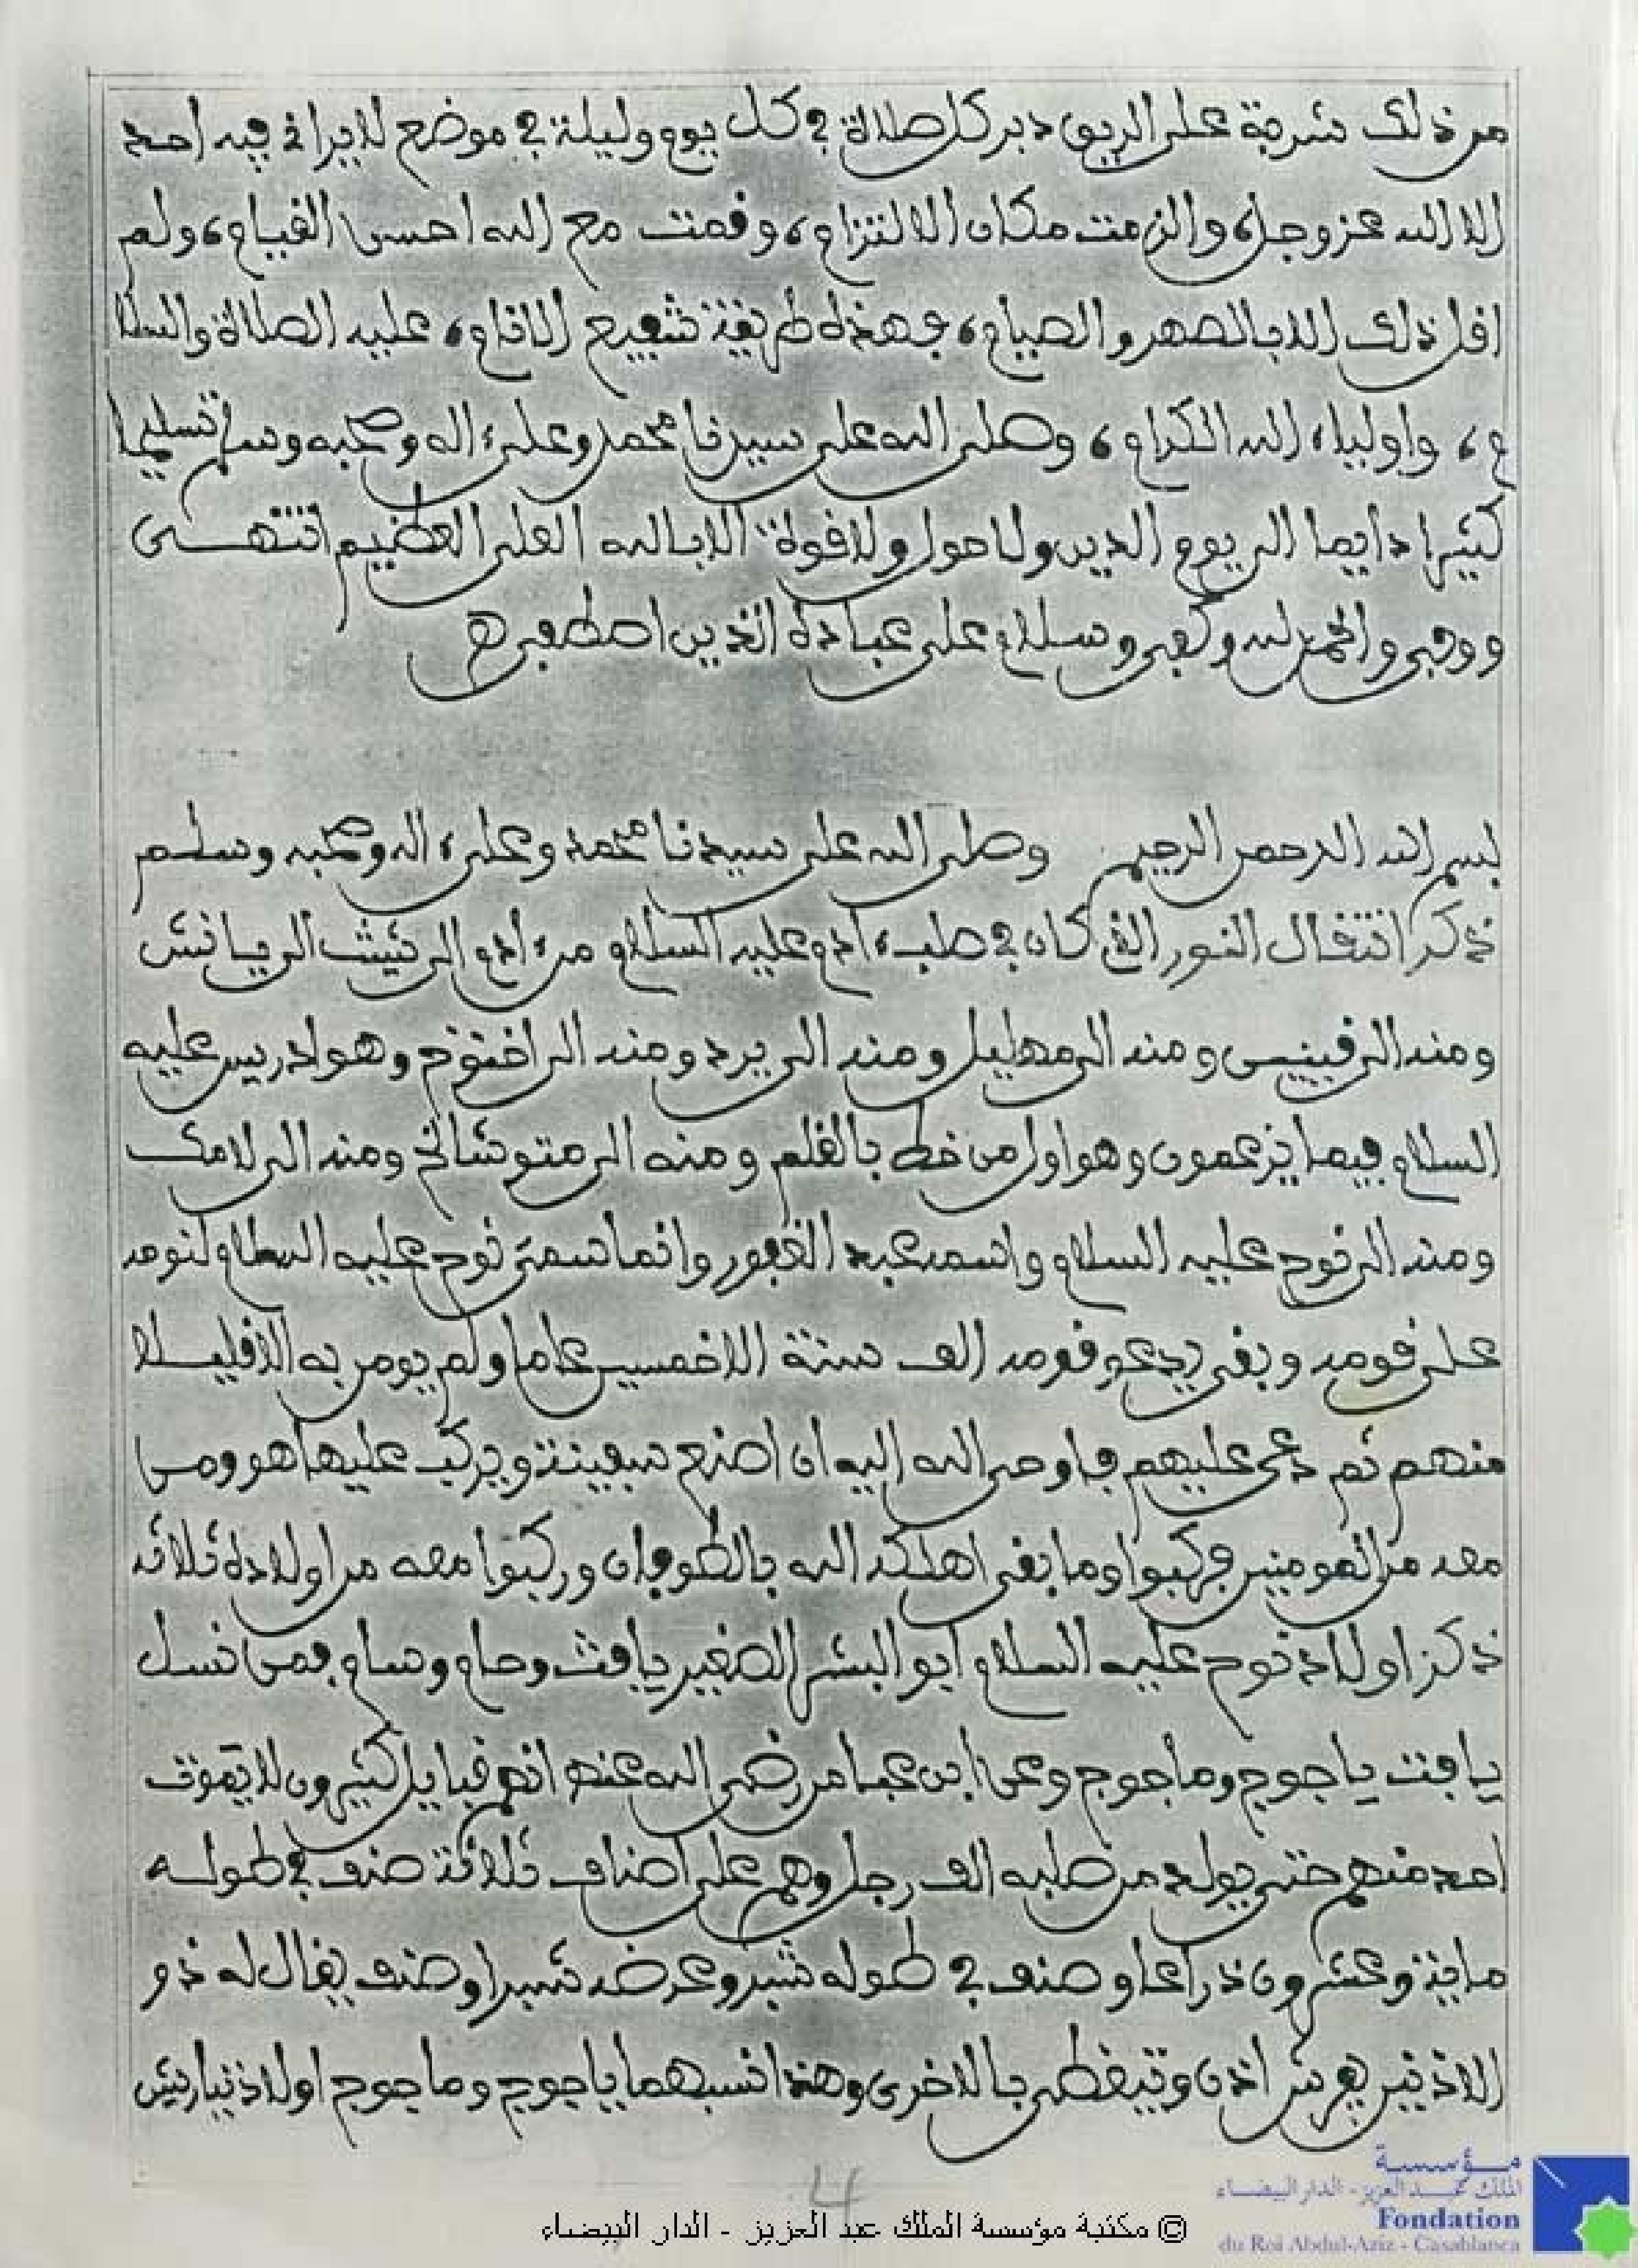 من ذلك شربة على الريق دبر كل صلاة في كل يوم وليلة في موضع لا يراني فيه احد
الا الله عز وجل، والزمت مكان الالتزام، وقمت مع الله احسن القيام، ولم
اقل ذلك الا بالصهر والصيام، فهذه طريقة شفيع الانام، عليه الصلاة والسلا
م، واولياء الله الكرام، وصلى الله على سيدنا محمد وعلى ءاله وصحبه وسلم تسليما
كثيرا دايما الى يوم الدين ولا حول ولا قوة الا بالله العلي العظيم انتهى
ووفى والحمد لله وكفى وسلام على عباده الذين اصطفى ه
بسم الله الرحمن الرحيم وصلى الله على سيدنا محمد وعلى ءاله وصحبه وسلم
ذكر انتقال النور الذي كان في صلب ءادم عليه السلام من ءادم الى شيث الى يانش
ومنه الى قينين ومنه الى مهليل ومنه الى يرد ومنه الى اخنوخ وهو ادريس عليه
السلام فيما يزعمون وهو اول من خط بالقلم ومنه الى متوشالخ ومنه الى لامك
ومنه الى نوح عليه السلام واسمه عبد الغفور وانما سمي نوح عليه السلام لنوحه
على قومه وبقي يدعو قومه الف سنة الا خمسين عاما ولم يومن به الا قليلا
منهم ثم دعى عليهم فاوحى الله اليه ان اصنع سفينة ويركب عليها هو ومن
معه من المومنين فركبوا وما بقي اهلكه الله بالطوفان وركبوا معه من اولاده ثلاثه
ذكر اولاد نوح عليه السلام ابو البشر الصغير يافث وحام وسام فمن نسل
يافث ياجوج وماجوج وعن ابن عباس رضي الله عنه انهم قبايل كثيرون لا يموت
احد منهم حتى يولد من صلبه الف رجل وهم على اصناف ثلاثة صنف في طوله
ماية وعشرون ذراعا وصنف في طوله شبر وعرضه شبرا وصنف يقال له ذو
الاذنين يفرش اذن ويتغطى بالاخرى وهذا نسبهما ياجوج وماجوج اولاد
4
© مكتبة مؤسسة الملك عبد العزيز - الدار البيضاء
مؤسسة
الملك عبد العزيز - الدار البيضاء
Fondation
du Roi Abdul-Aziz - Casablanca